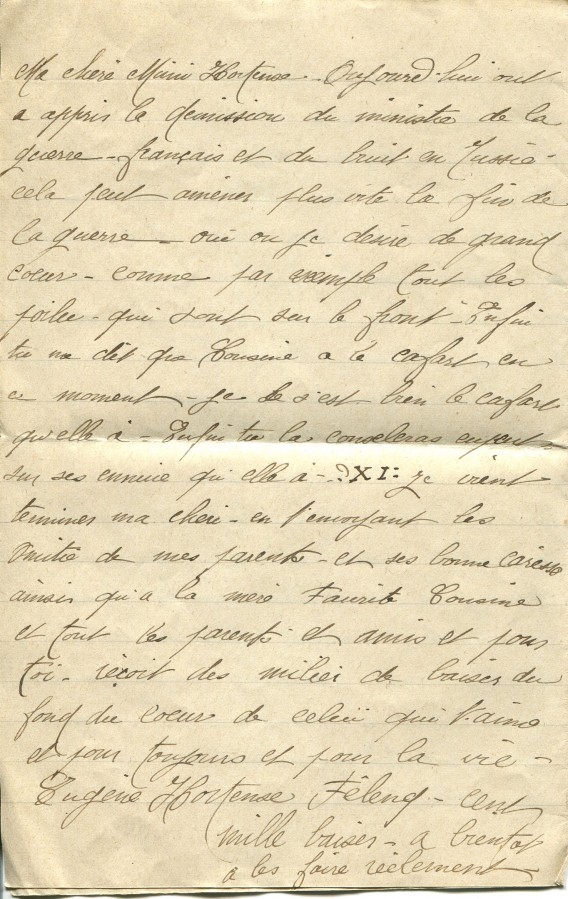 Ma chère Mimi Hortense - Aujourd'hui ont
a appris la démission du ministre de la
guerre - français et du bruit en Russie -
cela peut amèner plus vite la fin de
la guerre - oui ou je désire de grand
coeur - comme par exemple tout les
poilu - qui sont sur le front - Enfin
tu ma dit que Cousine a le cafart en
ce moment - je s'est bien le cafart
qu'elle à - Enfin tu la consoleras
sur ses ennuie qu'elle à - XI: je vient
terminer ma chéri - en t'envoyant les
Amitié de mes parents - et ses bonne caresse
ainsi qu'a la mère Faurite Cousine
et tout les parents et amis et pour
toi - reçoit des milier de baiser du
fond du coeur de celui qui t'aime
et pour toujours et pour la vie -
Eugène Hortense Félenq - cent
mille baiser - a bientot
a les faire réelement